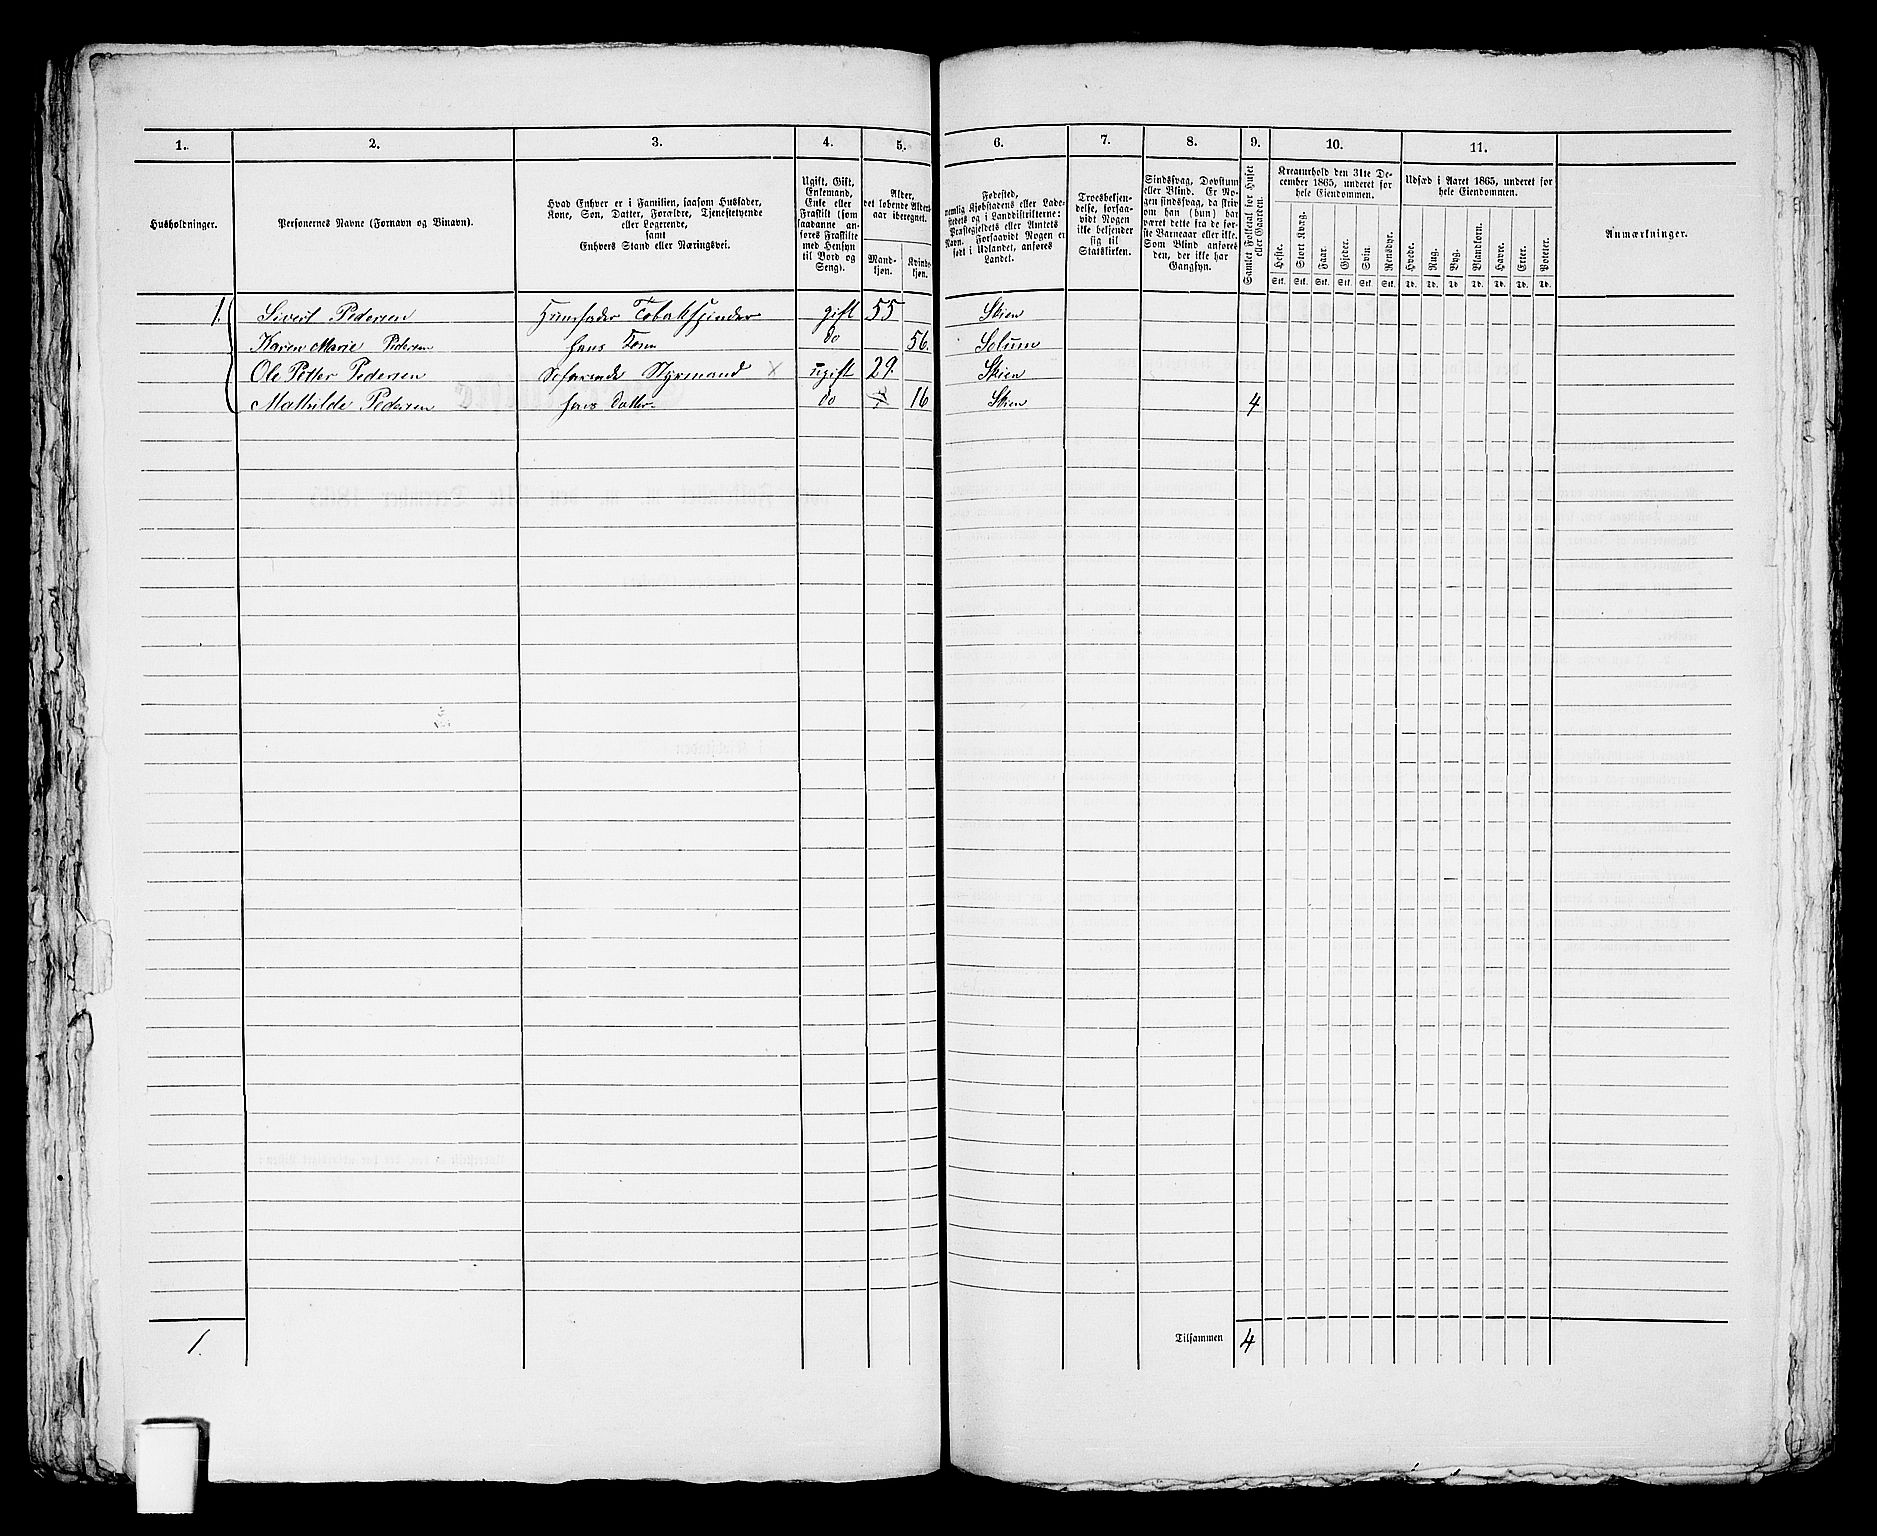 1. 2. 3. 4. 5. 6. 7. 8. 9. 10. 11.
Husholdninger.
Personernes Navne (Fornavn og Binavn).
Hvad Enhver er i Familien, saasom Husfader,
Kone, Søn, Datter, Forældre, Tjenestetyende
eller Logerende,
samt
Enhvers Stand eller Næringsvei.
Ugift, Gift,
Enkemand,
Enke eller
Fraskilt (som
saadanne an-
føres Fraskilte
med Hensyn
til Bord og
Seng).
Alder,
det løbende Alders-
aar iberegnet.
Mand-
kjøn.
Kvind-
kjøn.
Fødested,
nemlig Kjøbstadens eller Lade-
stedets og i Landdistrikterne:
Præstegjeldets eller Amtets
Navn. Forsaavidt Nogen er
født i Udlandet, anføres
Landet.
Troesbekjen-
delse, forsaa-
vidt Nogen
ikke bekjender
sig til
Statskirken.
Sindssvag, Døvstum
eller Blind. Er No-
gen sindssvag, da skriv
om han (hun) har
været dette fra de før-
ste Barneaar eller ikke.
Som Blind anføres
den, der ikke har
Gangsyn.
Samlet Folketal for Huset
eller Gaarden.
Kreaturhold den 31te De-
cember 1865, underet for
hele Eiendommen.
Heste. Stort Kvæg. Faar. Gjeder. Svin. Rensdyr.
Stk. Stk. Stk. Stk. Stk. Stk.
Udsæd i Aaret 1865, underet for
hele Eiendommen.
Hvede. Rug. Byg. Blandkorn. Havre. Erter. Poteter.
Td. Td. Td. Td. Td. Td. Td.
Anmærkninger.
1. Sivert Pedersen Huusfader Tobakspinder gift 55 Skien
Karen Marie Pedersen hans Kone do 56. Solum
Ole Petter Pedersen Søfarende Styrmand × ugift 29. Skien
Mathilde Pedersen hans Datter do 16 Skien 4
1. Tilsammen 4